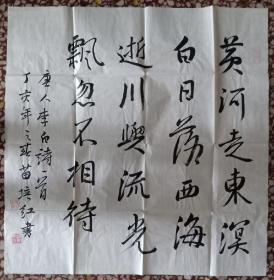 黄河走東溟
白日落西海
逝川與流光
飄忽不相待
唐人李白詩一首
丁亥年之秋苗培红書